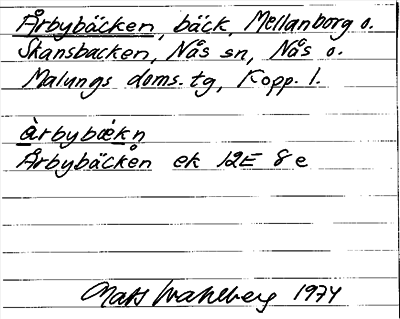 Årbybäcken, bäck, Mellanborg o.
Skansbacken, Nås sn, Nås o.
Malungs doms. tg, Kopp. l.
àrbybæ̀kn̥
Årbybäcken ek 12E 8e
Mats Wahlberg 1974